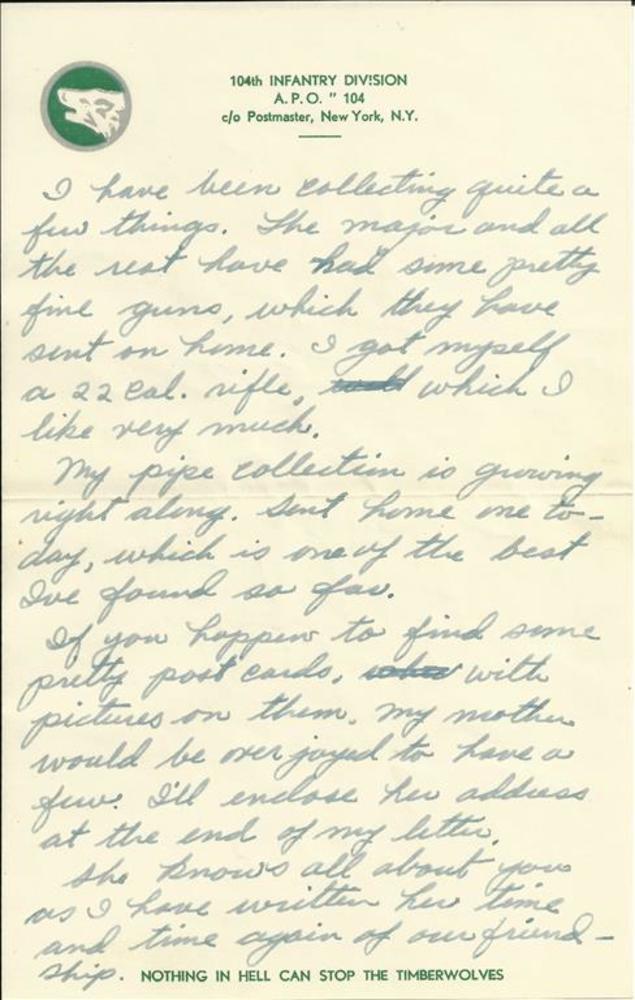 104th INFANTRY DIVISION
A. P. O. " 104
c/o Postmaster, New York, N.Y.
I have been collecting quite a
few things. The major and all
the rest have had some pretty
fine guns, which they have
sent on home. I got myself
a 22 Cal. rifle, which I
like very much.
My pipe collection is growing
right along. Sent home one to-
day, which is one of the best
Ive found so far.
If you happen to find some
pretty post cards, with
pictures on them. My mother
would be over joyed to have a
few. I'll enclose her address
at the end of my letter.
She knows all about you
as I have written her time
and time again of our friend-
ship.
NOTHING IN HELL CAN STOP THE TIMBERWOLVES